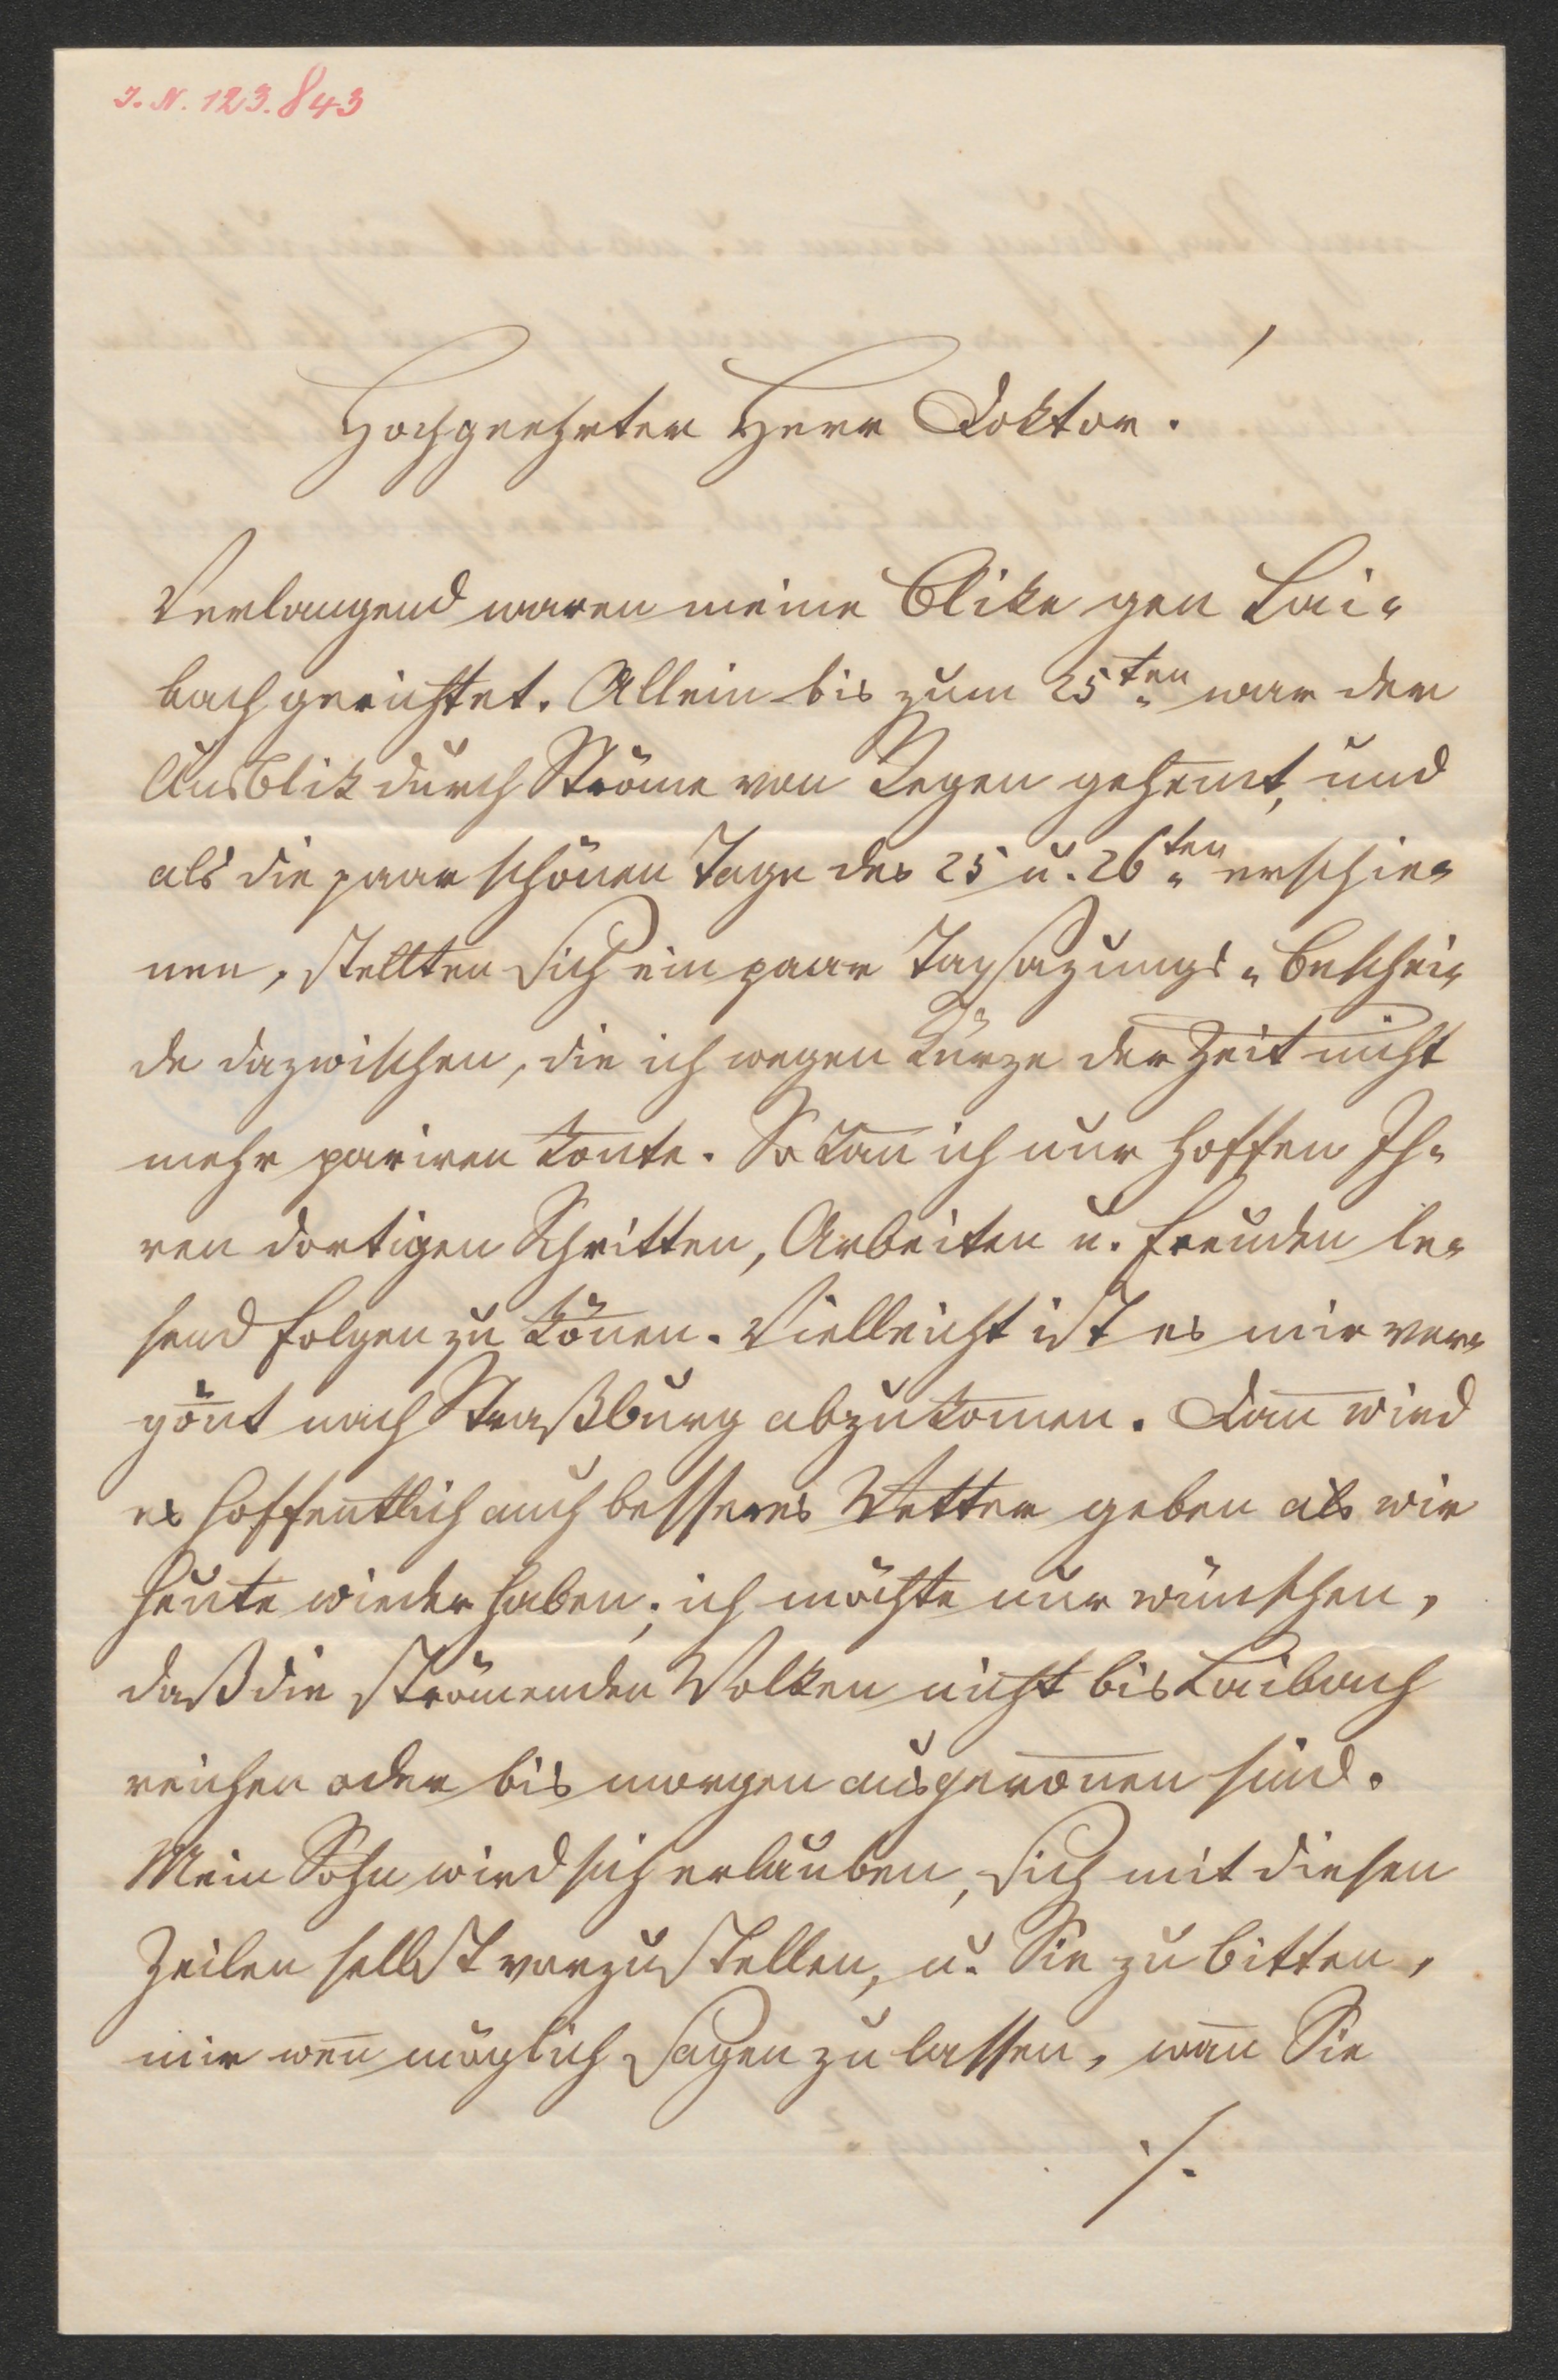 I. N. 123.843
Hochgeehrter Herr Doktor!
Verlangend waren meine Blike gen Lai-
bach gerichtet. Allein bis zum 25ten war der
Ausblik durch Ströme von Regen gehem̅t, und
als die paar schönen Tage des 25 u. 26ten erschie-
nen, stellten sich ein paar Tagsazungs-Beschei-
de dazwischen, die ich wegen Kürze der Zeit nicht
mehr pariren kon̅te. So kan̅ ich nur hoffen Ih-
ren dortigen Schritten, Arbeiten u. Freuden le-
send folgen zu kön̅en. Vielleicht ist es mir ver-
gön̅t nach Straßburg abzukom̅en. Dan̅ wird
es hoffentlich auch besseres Wetter geben als wir
heute wieder haben; ich möchte nur wünschen,
daß die strömenden Wolken nicht bis Laibach
reichen oder bis morgen ausgeron̅en sind.
Mein Sohn wird sich erlauben, sich mit diesen
Zeilen selbst vorzustellen, u. Sie zu bitten,
mir wen̅ möglich sagen zu lassen, wan̅ Sie
./.